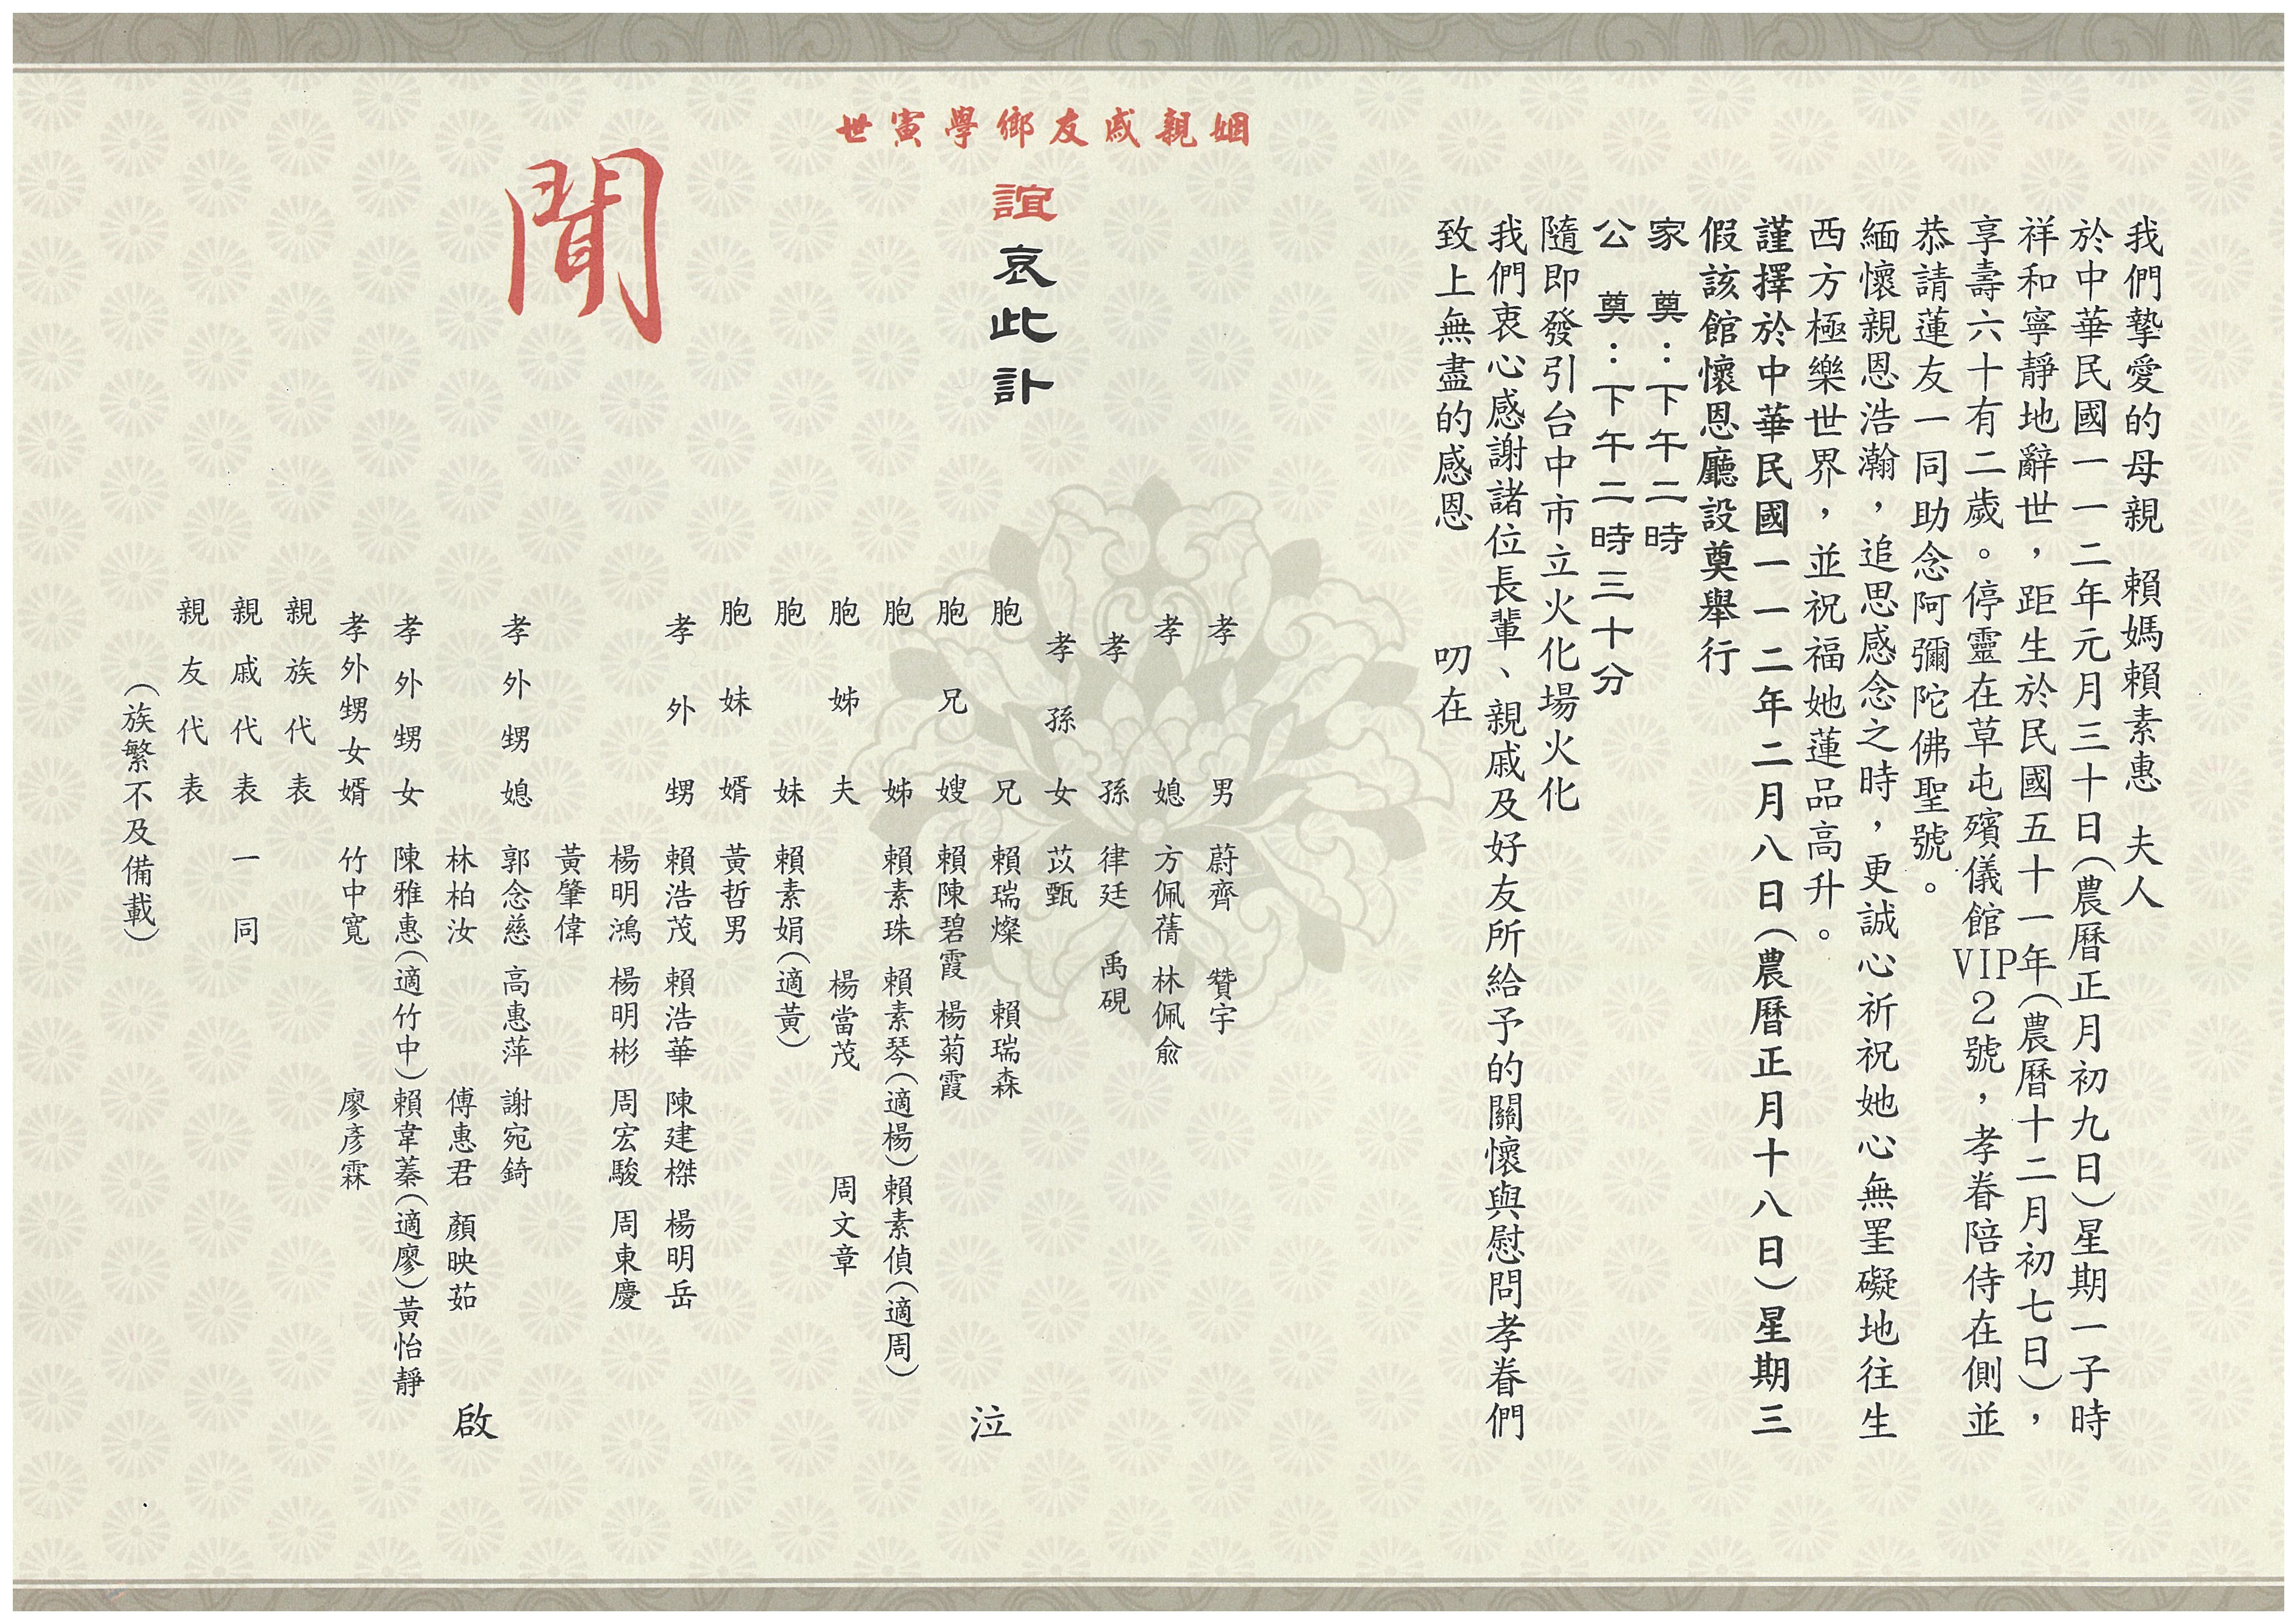 我們摯愛的母親　賴媽賴素惠　夫人
於中華民國一一二年元月三十日（農曆正月初九日）星期一子時
祥和寧靜地辭世，距生於民國五十一年（農曆十二月初七日），
享壽六十有二歲。停靈在草屯殯儀館VIP２號，孝眷陪侍在側並
恭請蓮友一同助念阿彌陀佛聖號。
緬懷親恩浩瀚，追思感念之時，更誠心祈祝她心無罣礙地往生
西方極樂世界，並祝福她蓮品高升。
謹擇於中華民國一一二年二月八日（農曆正月十八日）星期三
假該館懷恩廳設奠舉行
家　奠：下午二時
公　奠：下午二時三十分
隨即發引台中市立火化場火化
我們衷心感謝諸位長輩、親戚及好友所給予的關懷與慰問孝眷們
致上無盡的感恩　　叨在
姻親戚友鄉學寅世
誼哀此訃
聞
孝男　蔚齊　贊宇
孝媳　方佩蒨　林佩俞
孝孫　律廷　禹硯
孝孫女　苡甄
胞兄　賴瑞燦　賴瑞森
胞兄嫂　賴陳碧霞　楊菊霞
胞姊　賴素珠　賴素琴（適楊）賴素偵（適周）
胞姊夫　楊當茂　周文章
胞妹　賴素娟（適黃）
胞妹婿　黃哲男
孝外甥　賴浩茂　賴浩華　陳建榤　楊明岳
楊明鴻　楊明彬　周宏駿　周東慶
黃肇偉
孝外甥媳　郭念慈　高惠萍　謝宛錡
林柏汝　傅惠君　顏映茹
孝外甥女　陳雅惠（適竹中）賴韋蓁（適廖）黃怡靜
孝外甥女婿　竹中寬　廖彥霖
親族代表
親戚代表一同
親友代表
（族繁不及備載）
泣
啟